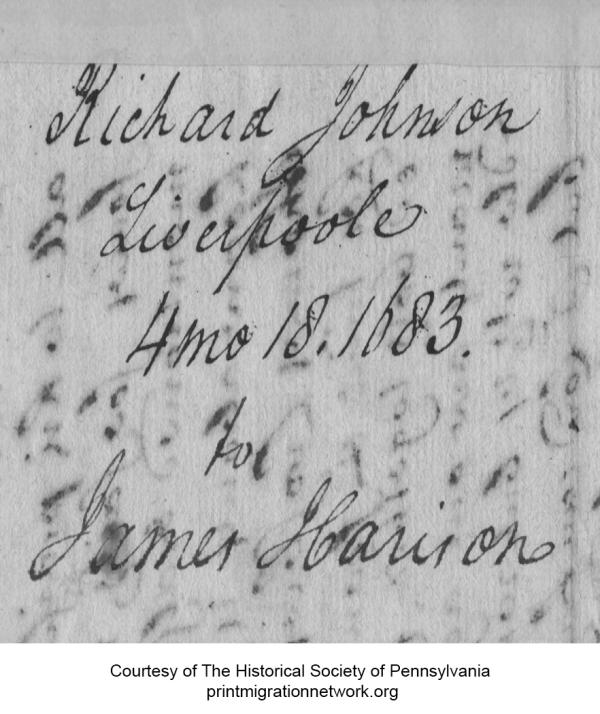 Richard Johnson
Liverpoole
4 mo 18. 1683.
to
James Harison
Courtesy of The Historical Society of Pennsylvania
printmigrationnetwork.org